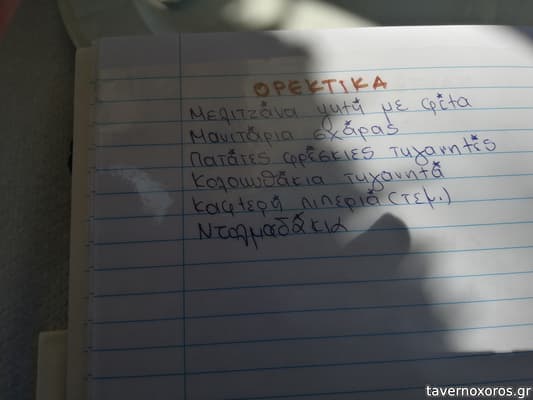 ΟΡΕΚΤΙΚΑ
Μελιτζάνα ψητή με φέτα
Μανιτάρια σχάρας
Πατάτες φρέσκιες τηγανητές
Κολοκυθάκια τηγανητά
Καφτερή πιπεριά (τεμ.)
Ντολμαδάκια
tavernoxoros.gr